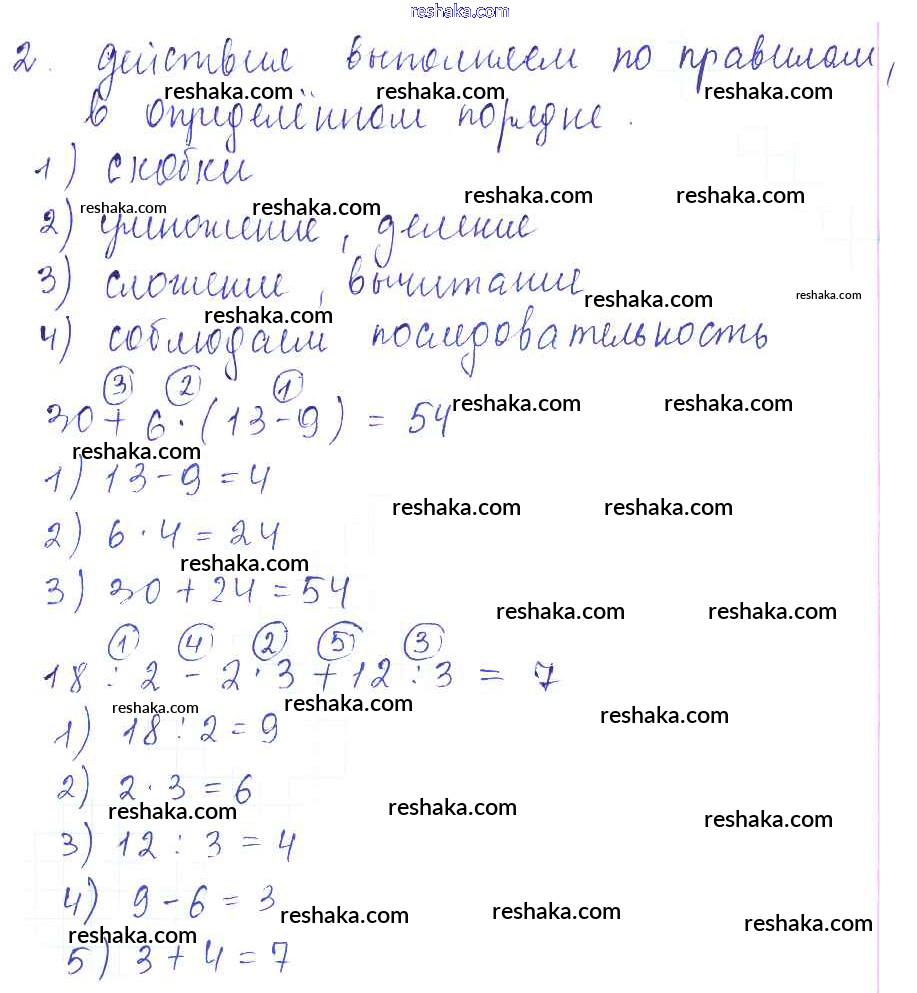 reshaka.com
2. действие выполняем по правилам,
reshaka.com reshaka.com reshaka.com
в определённом порядке.
1) скобки
reshaka.com reshaka.com
reshaka.com reshaka.com
2) умножение, деление
3) сложение, вычитание
reshaka.com reshaka.com
reshaka.com
4) соблюдаем последовательность
3 2 1
30 + 6 · (13 - 9) = 54
reshaka.com reshaka.com
reshaka.com
1) 13 - 9 = 4
reshaka.com reshaka.com
2) 6 · 4 = 24
reshaka.com
3) 30 + 24 = 54
reshaka.com reshaka.com
1 4 2 5 3
18 : 2 - 2 · 3 + 12 : 3 = 7
reshaka.com reshaka.com reshaka.com
1) 18 : 2 = 9
2) 2 · 3 = 6
reshaka.com reshaka.com reshaka.com
3) 12 : 3 = 4
4) 9 - 6 = 3
reshaka.com reshaka.com reshaka.com
reshaka.com
5) 3 + 4 = 7